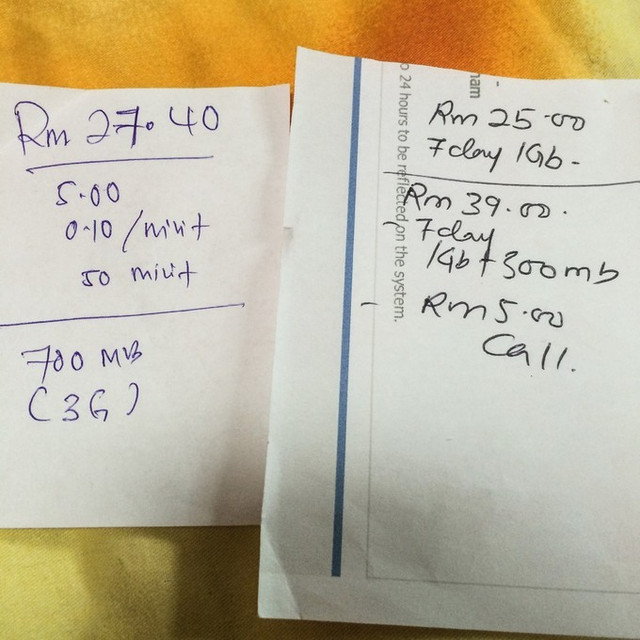 Rm 27.40
5.00
0.10/minit
50 minit
700 MB
(3G)
Rm 25.00
7day 1Gb -
Rm 39.00.
- 7day
1Gb + 300mb
- Rm 5.00
Call.
24 hours to be reflected on the system.